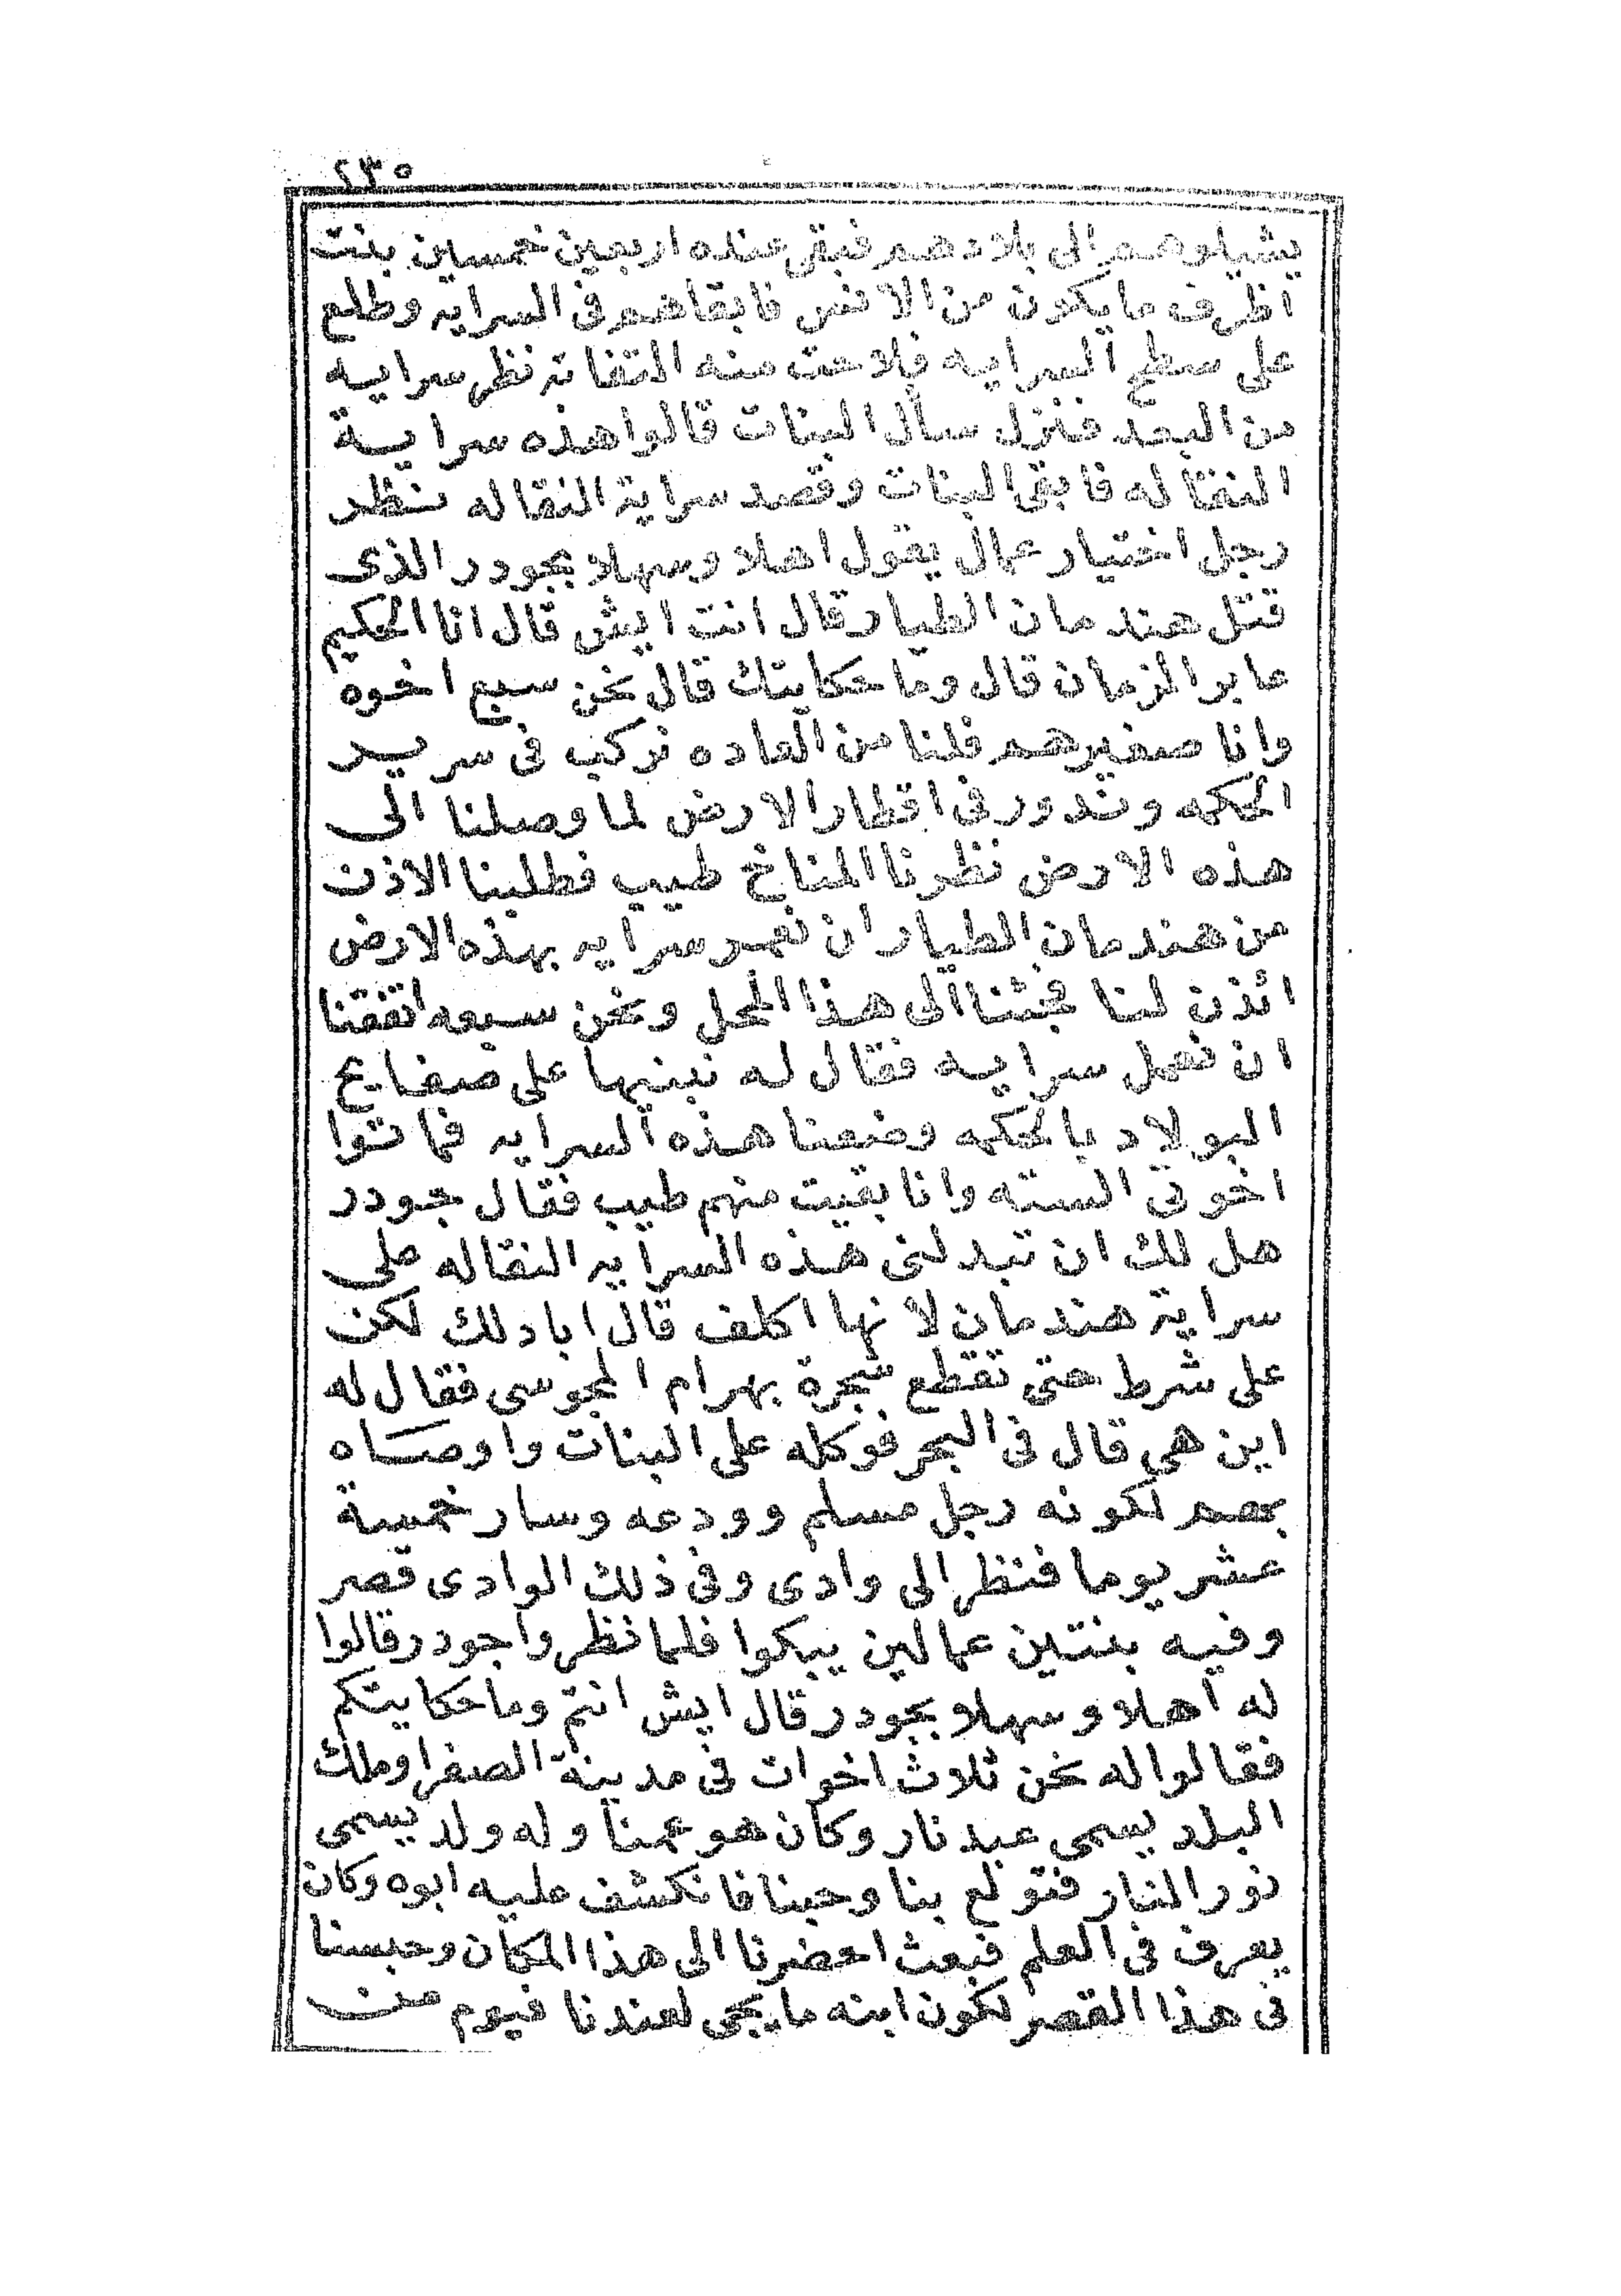 ٢٣٥
يشيلوهم الى بلادهم فبقى عنده اربعين خمسين بنت
اظرف ما يكون من الانس فابقاهم فى السرايه وطلع
على سطح السرايه فلاحت منه التفاته نظر سرايه
من البعد فنزل سأل البنات قالوا هذه سراية
النقاله فابقى البنات وقصد سراية النقاله نظر
رجل اختيار عمال يقول اهلا وسهلا بجودر الذى
قتل هندمان الطيار قال انت ايش قال انا الحكيم
عابر الزمان قال وما حكايتك قال نحن سبع اخوه
وانا صغيرهم فلنا من العاده نركب فى سرير
الحكمه وندور فى اقطار الارض لما وصلنا الى
هذه الارض نظرنا المناخ طيب فطلبنا الاذن
من هندمان الطيار ان نعمر سرايه بهذه الارض
ائذن لنا فجئنا الى هذا المحل ونحن سبعه اتفقنا
ان نعمل سرايه فقال له نبنيها على صفايح
البولاد بالحكمه وضعنا هذه السرايه فماتوا
اخوتى السته وانا بقيت منهم طيب فقال جودر
هل لك ان تبدلنى هذه السرايه النقاله على
سراية هندمان لانها اكلف قال ابادلك لكن
على شرط حتى تقطع شجرة بهرام المجوسى فقال له
اين هى قال فى البحر فوكله على البنات واوصاه
بهم لكونه رجل مسلم وودعه وسار خمسة
عشر يوما فنظر الى وادى وفى ذلك الوادى قصر
وفيه بنتين عمالين يبكوا فلما نظروا جودر قالوا
له اهلا وسهلا بجودر قال ايش انتم وما حكايتكم
فقالوا له نحن ثلاث اخوات فى مدينة الصفرا وملك
البلد يسمى عبد نار وكان هو عمنا وله ولد يسمى
نور النار فتولع بنا وحبنا فانكشف عليه ابوه وكان
يعرف فى العلم فبعث احضرنا الى هذا المكان وحبسنا
فى هذا القصر لكون ابنه ما يجى لعندنا فيوم من